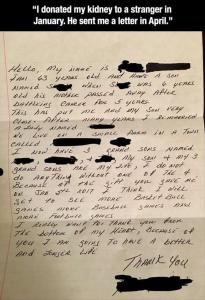 "I donated my kidney to a stranger in
January. He sent me a letter in April."
Hello, my name is
I am 63 years old and have a son
named S when S was 6 years
old his mother passed away after
battling cancer for 5 years
This has put me and my son very
close. After many years I remarried
a lady named
we live on a small farm in a town
called
I now have 3 grand sons named
my son & my 3
grand sons are my life, I do not
do anything without one of the 4
Because of the gift you gave me
on Jan 5th 2017 I think I will
get to see more Basket Ball
games more Baseball games and
more football games
I really want to thank you from
the bottom of my heart, Because of
you I am going to have a better
and longer life
Thank You